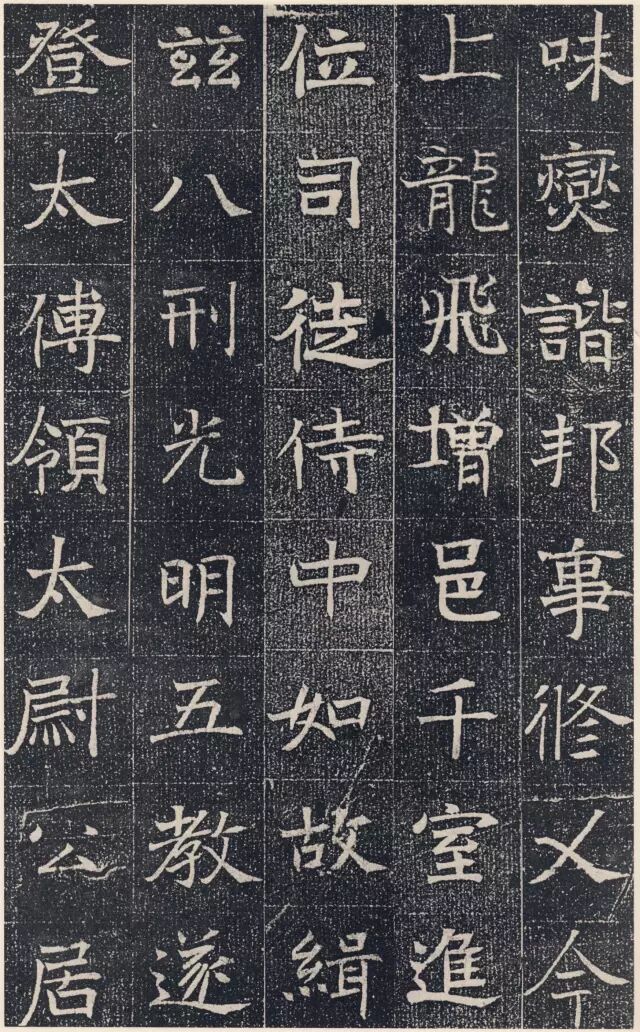 味燮諧邦事脩乂今
上龍飛增邑千室進
位司徒侍中如故緝
兹八刑光明五教遂
登太傅領太尉公居